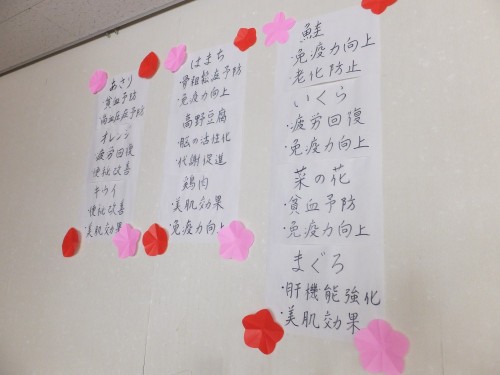 あさり
・貧血予防
・高血圧症予防
オレンジ
疲労回復
・便秘改善
キウイ
・便秘改善
・美肌効果
はまち
・骨粗鬆症予防
・免疫力向上
高野豆腐
・脳の活性化
・代謝促進
鶏肉
・美肌効果
・免疫力向上
鮭
・免疫力向上
・老化防止
いくら
・疲労回復
・免疫力向上
菜の花
・貧血予防
・免疫力向上
まぐろ
・肝機能強化
・美肌効果